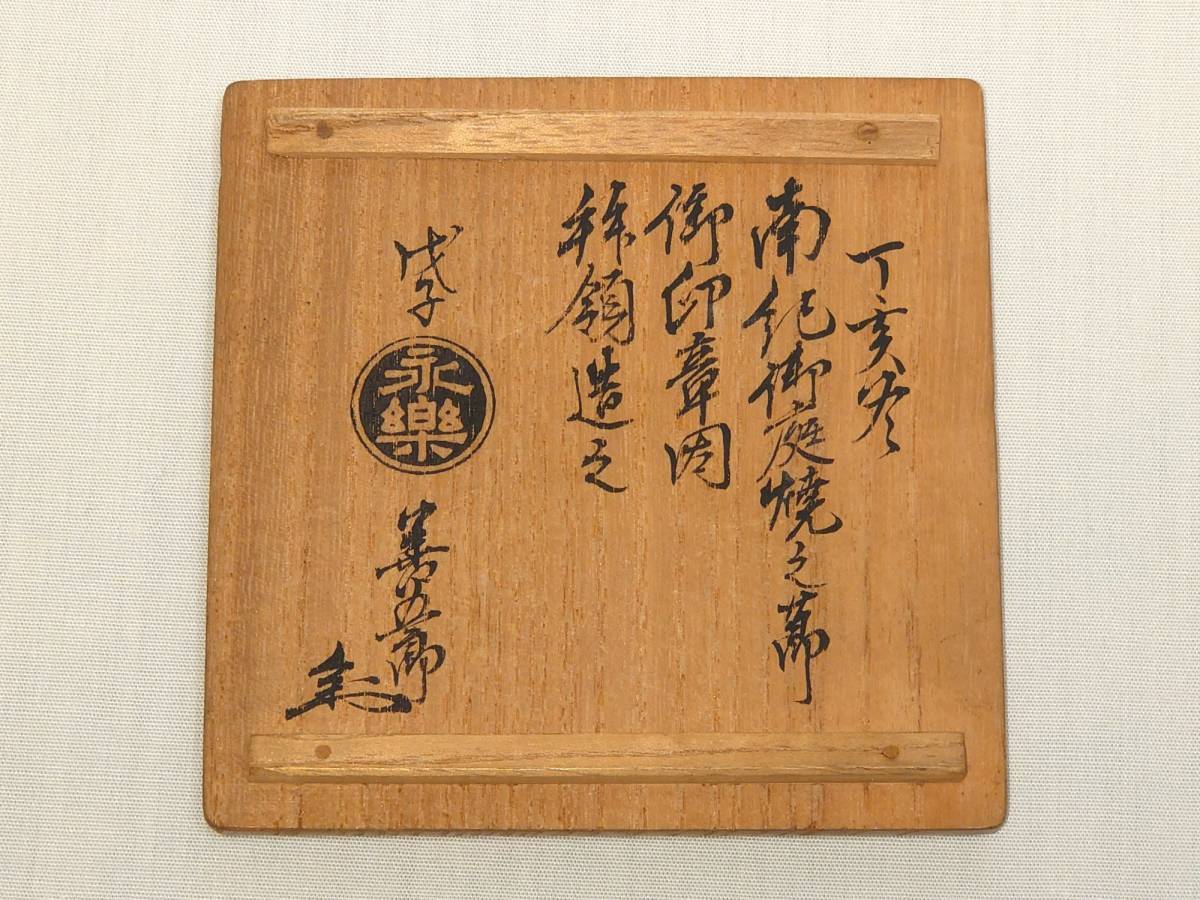 丁亥冬
南紀御庭焼之節
御印章因
拝領造之
戊子
永樂
善五郎